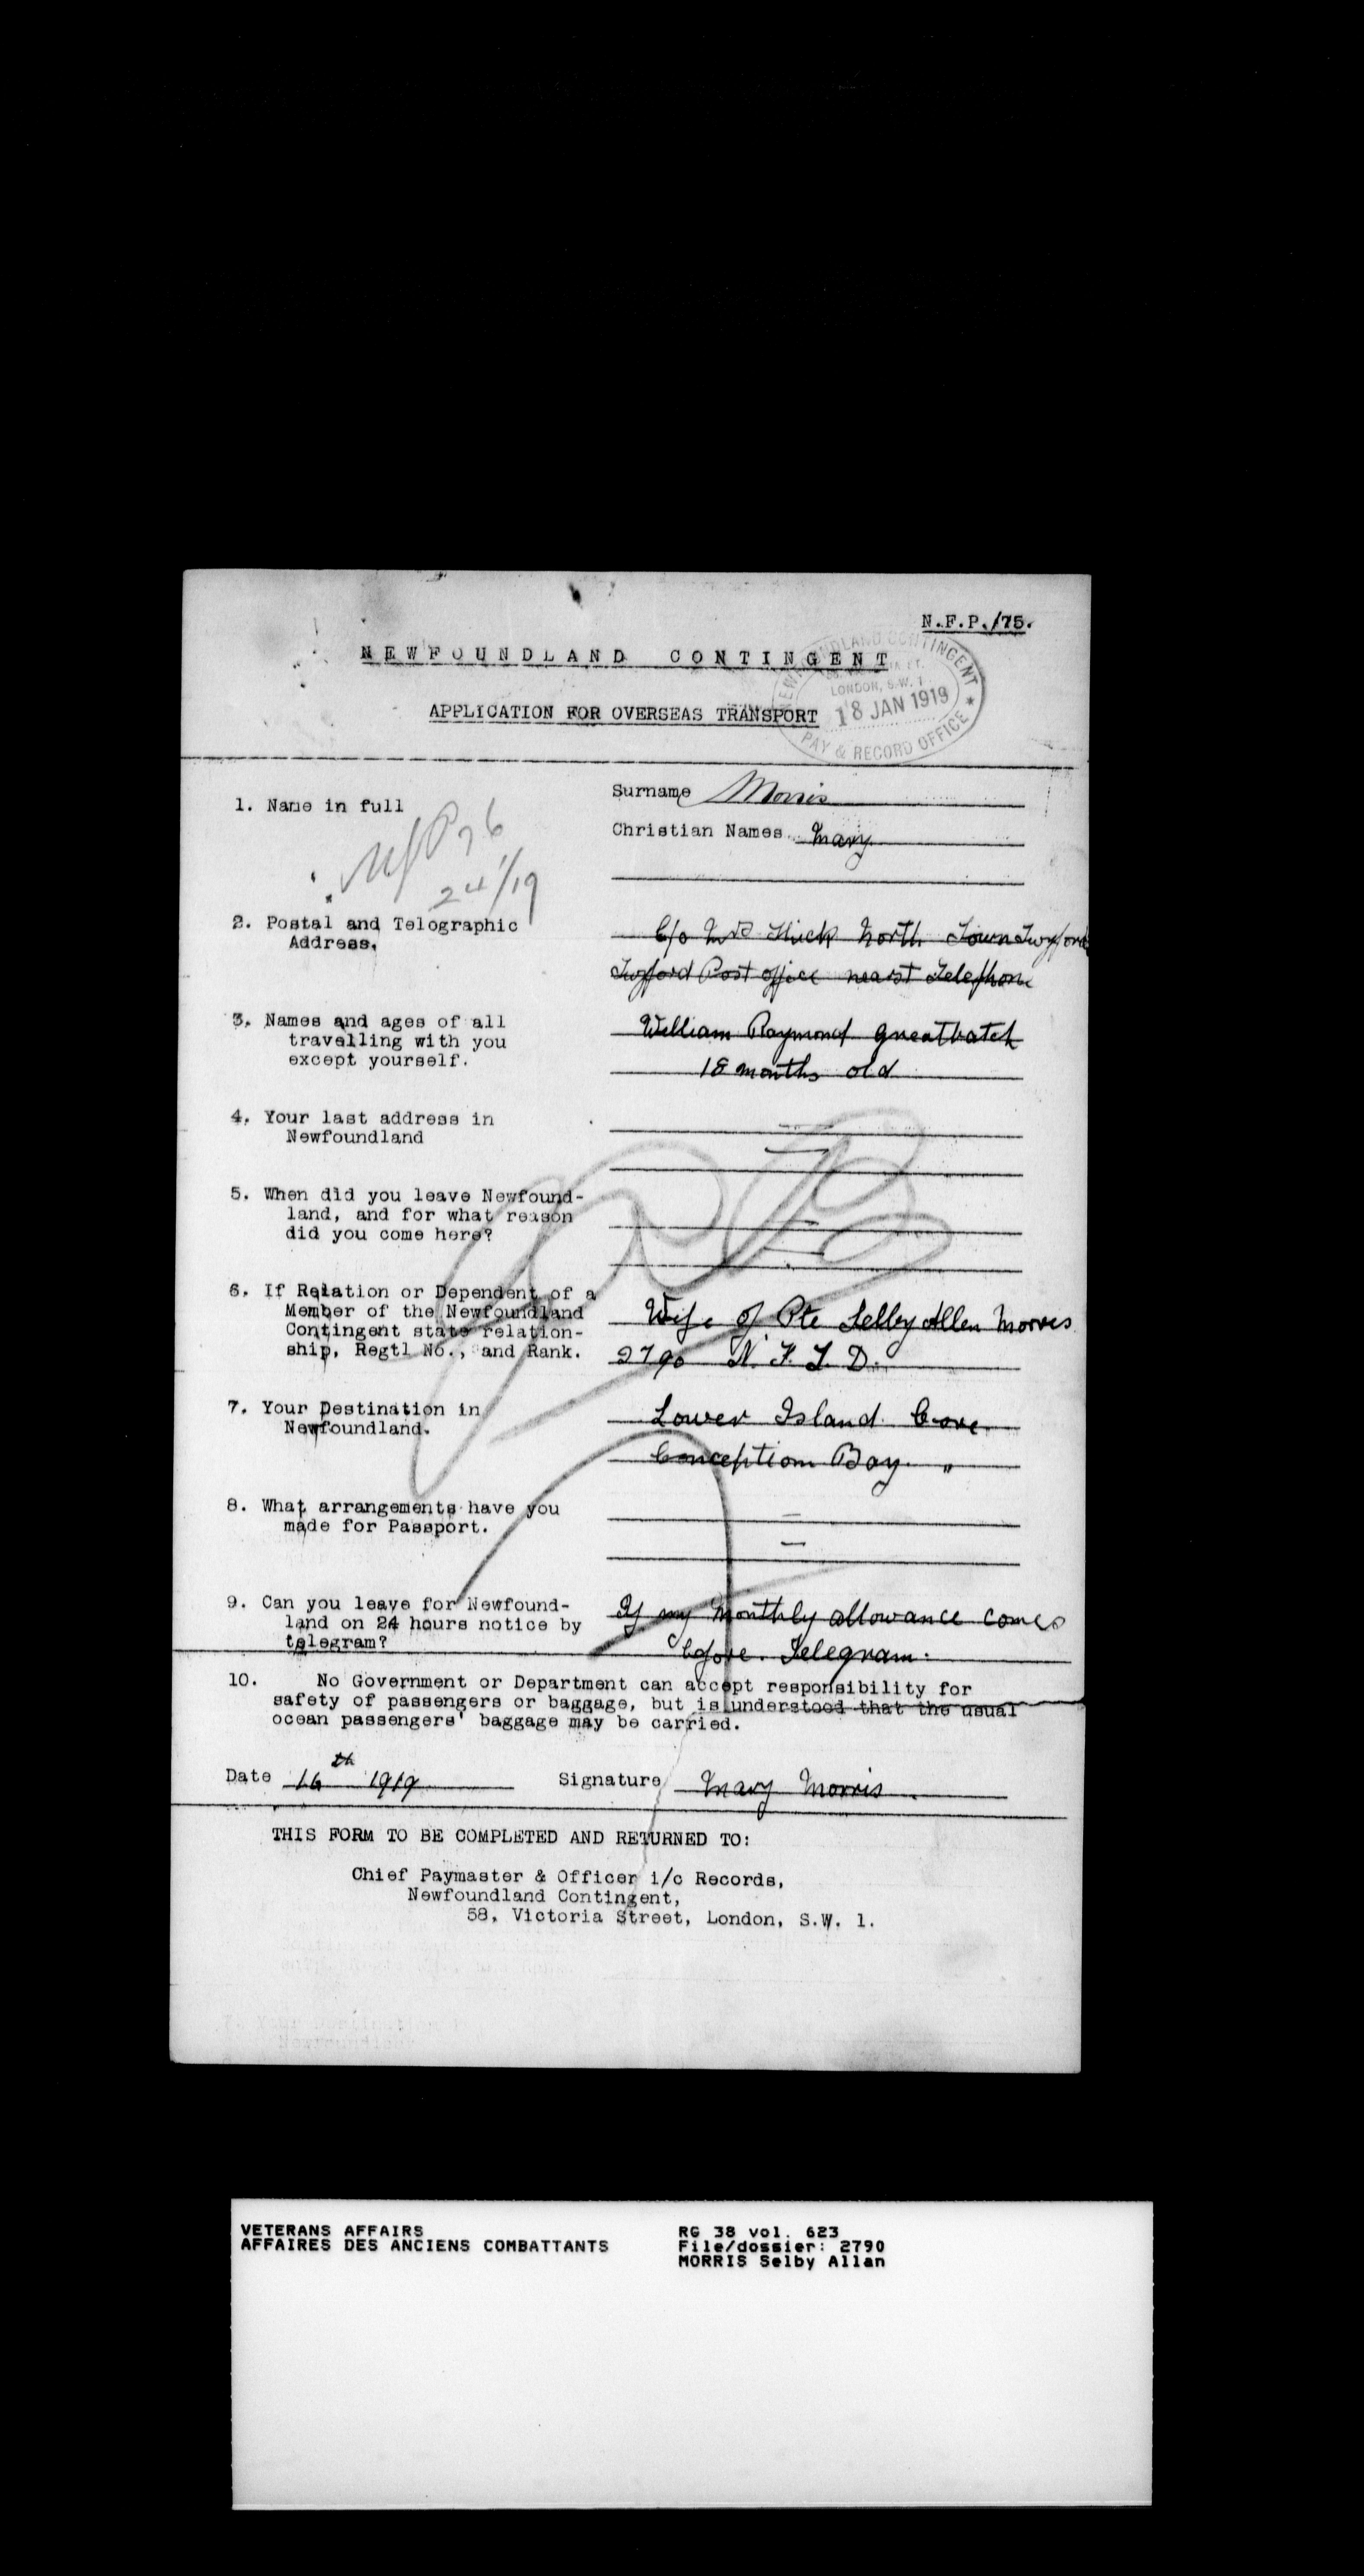 N.F.P./75.
NEWFOUNDLAND CONTINGENT
APPLICATION FOR OVERSEAS TRANSPORT
NEWFOUNDLAND CONTINGENT
LONDON, S.W. 1
18 JAN 1919
PAY & RECORD OFFICE
1. Name in full
Surname Morris
Christian Names Mary
24/1/19
2. Postal and Telographic
Address.
C/o Mrs North Town Twyford
Twyford Post office nearst Telephone
3. Names and ages of all
travelling with you
except yourself.
William Raymond Greatbatch
18 months old
4. Your last address in
Newfoundland
5. When did you leave Newfound-
land, and for what reason
did you come here?
6. If Relation or Dependent of a
Member of the Newfoundland
Contingent state relation-
ship, Regtl No., and Rank.
Wife of Pte Selby Allen Morris
2790 N. F. L. D.
7. Your Destination in
Newfoundland.
Lower Island Cove
Conception Bay "
8. What arrangements have you
made for Passport.
9. Can you leave for Newfound-
land on 24 hours notice by
telegram?
If my monthly allowance comes
before. Telegram.
10. No Government or Department can accept responsibility for
safety of passengers or baggage, but is understood that the usual
ocean passengers' baggage may be carried.
Date 16th 1919 Signature Mary Morris.
THIS FORM TO BE COMPLETED AND RETURNED TO:
Chief Paymaster & Officer i/c Records,
Newfoundland Contingent,
58, Victoria Street, London, S.W. 1.
VETERANS AFFAIRS
AFFAIRES DES ANCIENS COMBATTANTS
RG 38 vol. 623
File/dossier: 2790
MORRIS Selby Allan